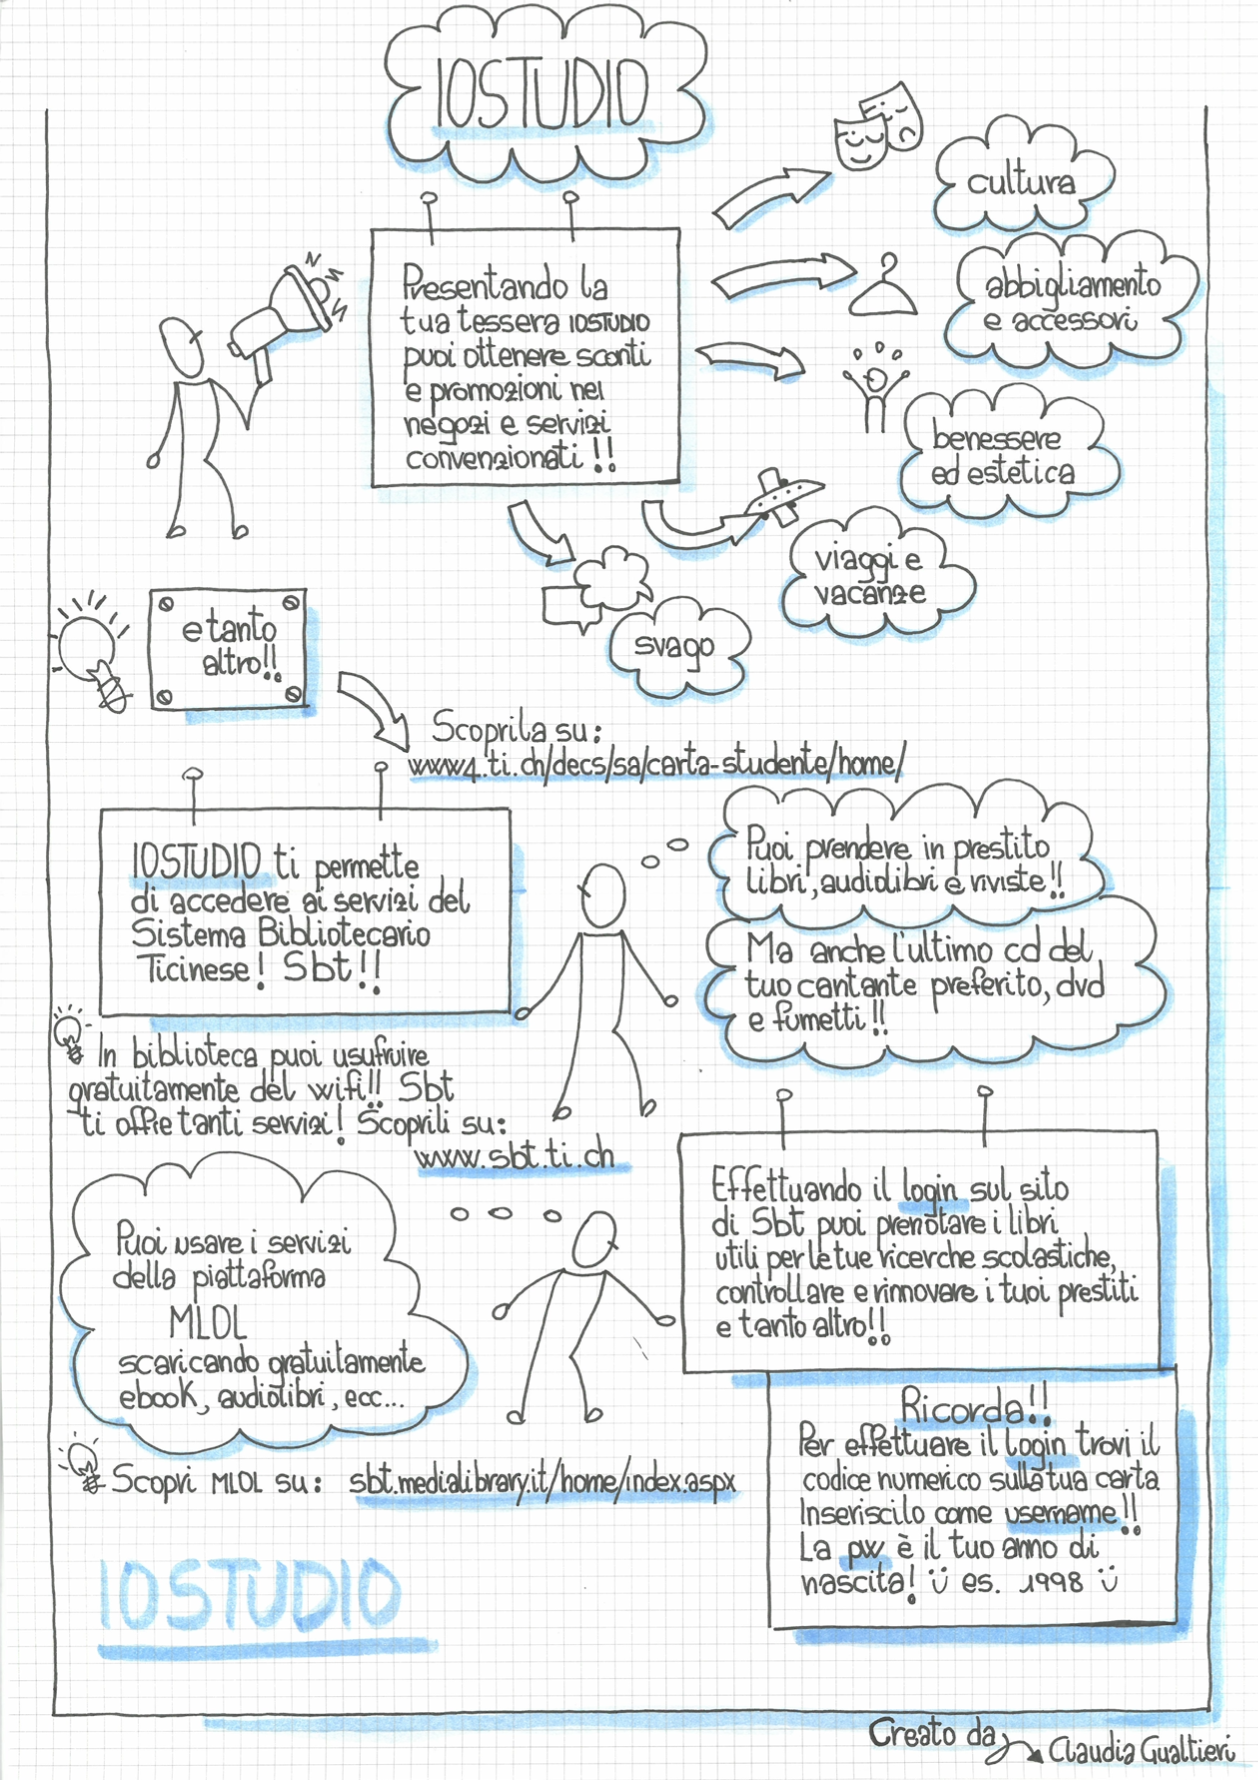 IOSTUDIO
Presentando la
tua tessera IOSTUDIO
puoi ottenere sconti
e promozioni nei
negozi e servizi
convenzionati!!
cultura
abbigliamento
e accessori
benessere
ed estetica
viaggi e
vacanze
svago
e tanto
altro!!
Scoprila su:
www4.ti.ch/decs/sa/carta-studente/home/
IOSTUDIO ti permette
di accedere ai servizi del
Sistema Bibliotecario
Ticinese! Sbt!!
Puoi prendere in prestito
libri, audiolibri e riviste!!
Ma anche l'ultimo cd del
tuo cantante preferito, dvd
e fumetti!!
In biblioteca puoi usufruire
gratuitamente del wifi!! Sbt
ti offre tanti servizi! Scoprili su:
www.sbt.ti.ch
Effettuando il login sul sito
di Sbt puoi prenotare i libri
utili per le tue ricerche scolastiche,
controllare e rinnovare i tuoi prestiti
e tanto altro!!
Puoi usare i servizi
della piattaforma
MLOL
scaricando gratuitamente
ebook, audiolibri, ecc...
Scopri MLOL su: sbt.medialibrary.it/home/index.aspx
Ricorda!!
Per effettuare il login trovi il
codice numerico sulla tua carta
Inseriscilo come username!!
La pw è il tuo anno di
nascita! Ü es. 1998 Ü
IOSTUDIO
Creato da
Claudia Gualtieri